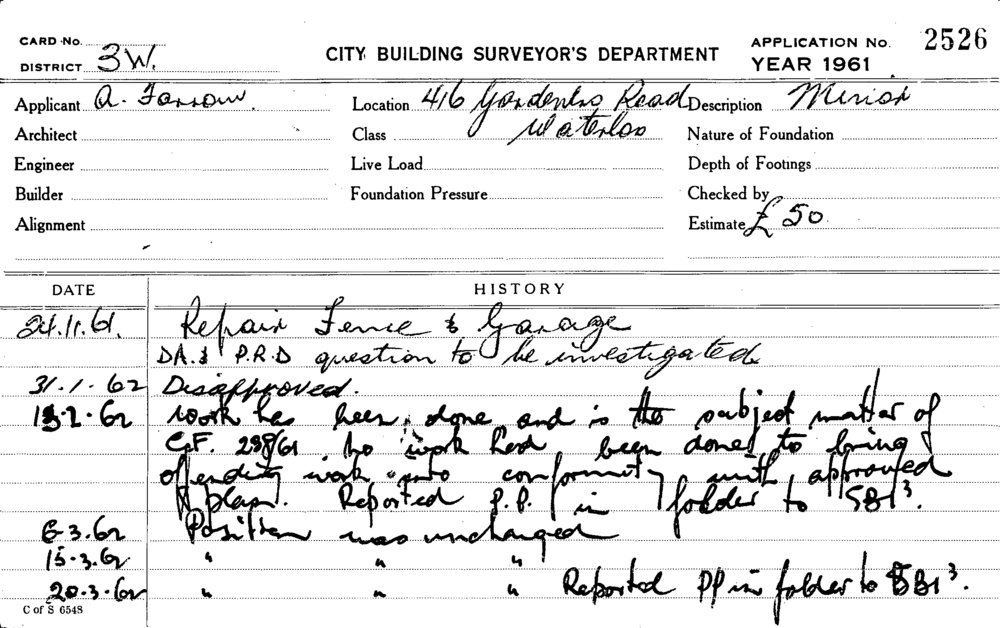 CARD No.
DISTRICT 3W.
CITY BUILDING SURVEYOR'S DEPARTMENT
APPLICATION No. 2526
YEAR 1961
Applicant A. Farrow Location 416 Gardeners Road Description Minor
Architect Class Waterloo Nature of Foundation
Engineer Live Load Depth of Footings
Builder Foundation Pressure Checked by
Alignment Estimate £ 50
DATE HISTORY
24.11.61. Repair Fence & Garage
DA. & P.R.D question to be investigated
31.1.62 Disapproved.
13.2.62 work has been done and is the subject matter of
C.F. 238/61 no work had been done to bring
offending work into conformity with approved
plan. Reported P.P. in folder to SBI³.
6.3.62 Position was unchanged
15.3.62 " " "
20.3.62 " " " Reported PP in folder to SBI³.
C of S 6548